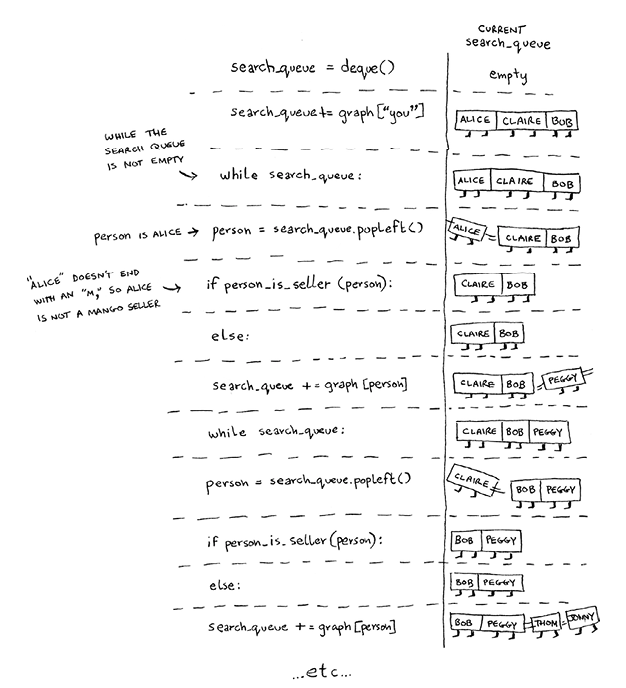 CURRENT
search_queue
search_queue = deque()
empty
search_queue += graph["you"]
ALICE CLAIRE BOB
WHILE THE
SEARCH QUEUE
IS NOT EMPTY
while search_queue:
ALICE CLAIRE BOB
person IS ALICE → person = search_queue.popleft()
ALICE CLAIRE BOB
"ALICE" DOESN'T END
WITH AN "M," SO ALICE
IS NOT A MANGO SELLER
if person_is_seller (person):
CLAIRE BOB
else:
CLAIRE BOB
search_queue += graph[person]
CLAIRE BOB PEGGY
while search_queue:
CLAIRE BOB PEGGY
person = search_queue.popleft()
CLAIRE BOB PEGGY
if person_is_seller(person):
BOB PEGGY
else:
BOB PEGGY
search_queue += graph[person]
BOB PEGGY THOM JONNY
...etc...